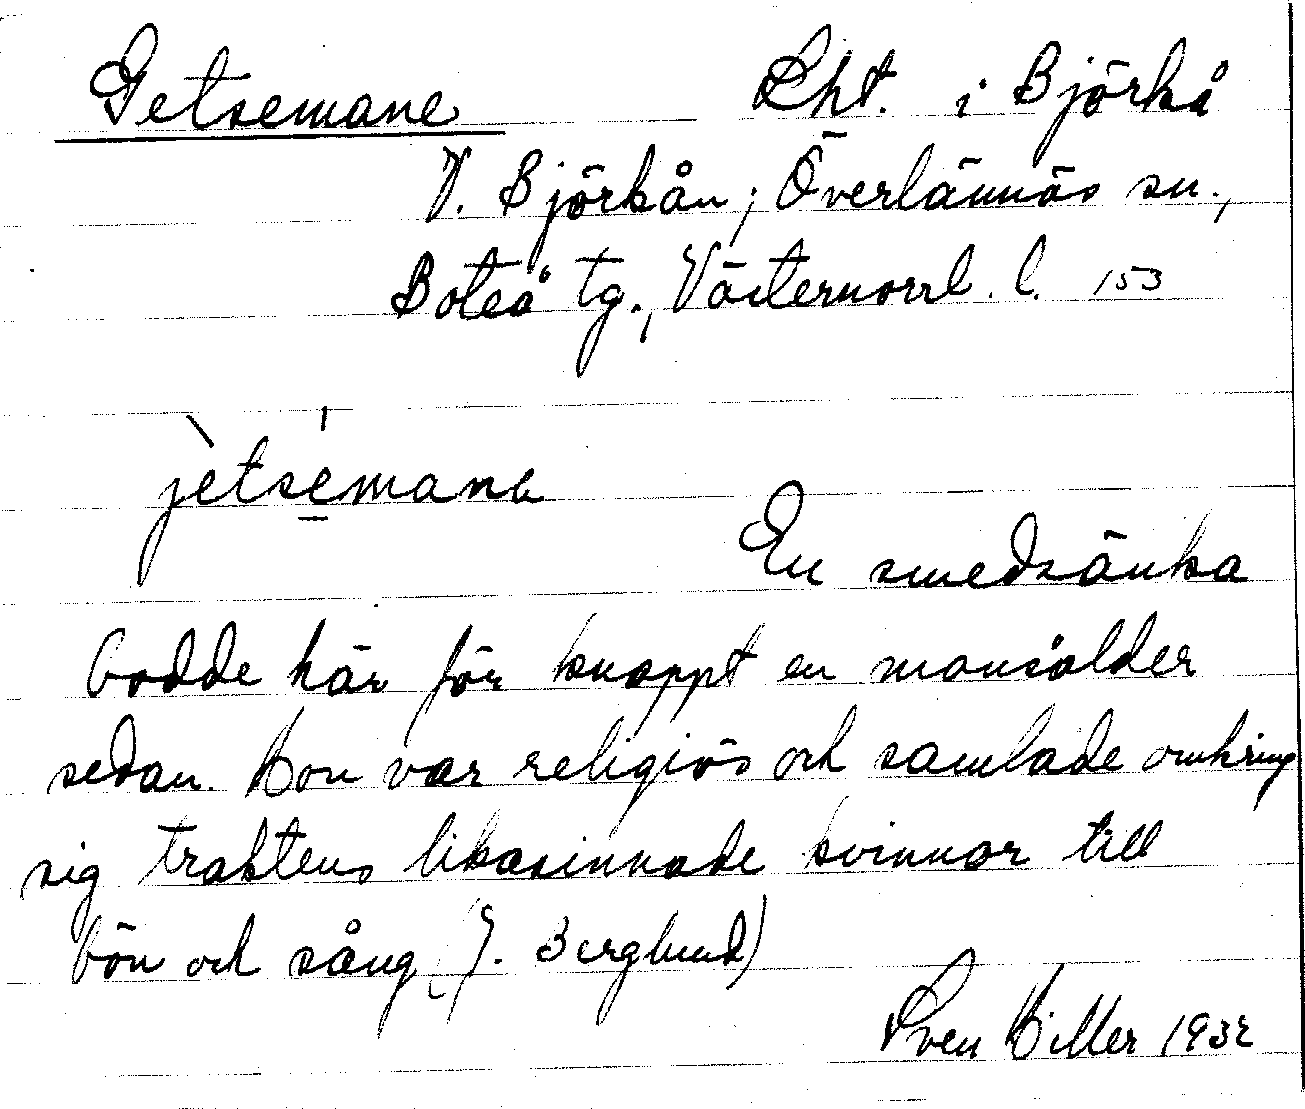 Getsemane Lht. i Björkå
V. Björkån; Överlännäs sn.,
Boteå tg., Västernorrl. l. 153
jetsemana
En smedsänka
bodde här för knappt en mansålder
sedan. Hon var religiös och samlade omkring
sig traktens likasinnade kvinnor till
bön och sång (J. Berglund)
Sven Hiller 1932